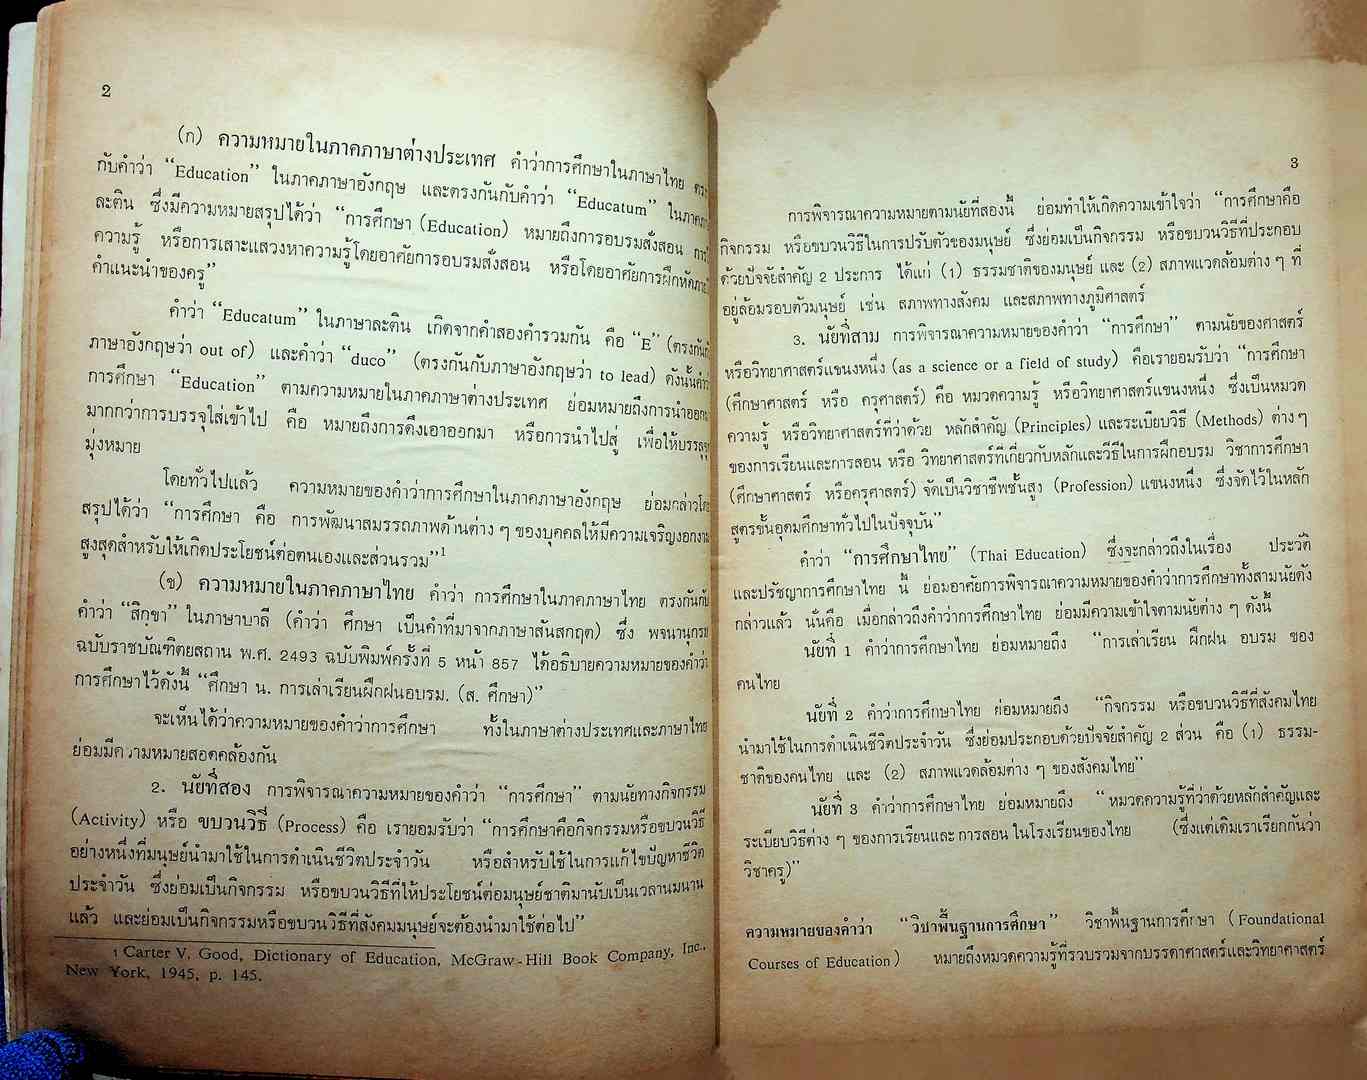 2
(ก) ความหมายในภาคภาษาต่างประเทศ คำว่าการศึกษาในภาษาไทย ตรง
กับคำว่า “Education” ในภาคภาษาอังกฤษ และตรงกันกับคำว่า “Educatum” ในภาคภา
ละติน ซึ่งมีความหมายสรุปได้ว่า “การศึกษา (Education) หมายถึงการอบรมสั่งสอน การ
ความรู้ หรือการเสาะแสวงหาความรู้โดยอาศัยการอบรมสั่งสอน หรือโดยอาศัยการฝึกหัดภาย
คำแนะนำของครู”
คำว่า “Educatum” ในภาษาละติน เกิดจากคำสองคำรวมกัน คือ “E” (ตรงกันกับ
ภาษาอังกฤษว่า out of) และคำว่า “duco” (ตรงกันกับภาษาอังกฤษว่า to lead) ดังนั้นคำว่า
การศึกษา “Education” ตามความหมายในภาคภาษาต่างประเทศ ย่อมหมายถึงการนำออก
มากกว่าการบรรจุใส่เข้าไป คือ หมายถึงการดึงเอาออกมา หรือการนำไปสู่ เพื่อให้บรรลุ
มุ่งหมาย
โดยทั่วไปแล้ว ความหมายของคำว่าการศึกษาในภาคภาษาอังกฤษ ย่อมกล่าวโดย
สรุปได้ว่า “การศึกษา คือ การพัฒนาสมรรถภาพด้านต่าง ๆ ของบุคคลให้มีความเจริญงอกงาม
สูงสุดสำหรับให้เกิดประโยชน์ต่อตนเองและส่วนรวม”1
(ข) ความหมายในภาคภาษาไทย คำว่า การศึกษาในภาคภาษาไทย ตรงกันกับ
คำว่า “สิกฺขา” ในภาษาบาลี (คำว่า ศึกษา เป็นคำที่มาจากภาษาสันสกฤต) ซึ่ง พจนานุกรม
ฉบับราชบัณฑิตยสถาน พ.ศ. 2493 ฉบับพิมพ์ครั้งที่ 5 หน้า 857 ได้อธิบายความหมายของคำว่า
การศึกษาไว้ดังนี้ “ศึกษา น. การเล่าเรียนฝึกฝนอบรม. (ส. ศึกษา)”
จะเห็นได้ว่าความหมายของคำว่าการศึกษา ทั้งในภาษาต่างประเทศและภาษาไทย
ย่อมมีความหมายสอดคล้องกัน
2. นัยที่สอง การพิจารณาความหมายของคำว่า “การศึกษา” ตามนัยทางกิจกรรม
(Activity) หรือ ขบวนวิธี (Process) คือ เรายอมรับว่า “การศึกษาคือกิจกรรมหรือขบวนวิธี
อย่างหนึ่งที่มนุษย์นำมาใช้ในการดำเนินชีวิตประจำวัน หรือสำหรับใช้ในการแก้ไขปัญหาชีวิต
ประจำวัน ซึ่งย่อมเป็นกิจกรรม หรือขบวนวิธีที่ให้ประโยชน์ต่อมนุษย์ชาติมานับเป็นเวลานมนาน
แล้ว และย่อมเป็นกิจกรรมหรือขบวนวิธีที่สังคมมนุษย์จะต้องนำมาใช้ต่อไป”
1 Carter V. Good, Dictionary of Education, McGraw-Hill Book Company, Inc.,
New York, 1945, p. 145.
3
การพิจารณาความหมายตามนัยที่สองนี้ ย่อมทำให้เกิดความเข้าใจว่า “การศึกษาคือ
กิจกรรม หรือขบวนวิธีในการปรับตัวของมนุษย์ ซึ่งย่อมเป็นกิจกรรม หรือขบวนวิธีที่ประกอบ
ด้วยปัจจัยสำคัญ 2 ประการ ได้แก่ (1) ธรรมชาติของมนุษย์ และ (2) สภาพแวดล้อมต่าง ๆ ที่
อยู่ล้อมรอบตัวมนุษย์ เช่น สภาพทางสังคม และสภาพทางภูมิศาสตร์
3. นัยที่สาม การพิจารณาความหมายของคำว่า “การศึกษา” ตามนัยของศาสตร์
หรือวิทยาศาสตร์แขนงหนึ่ง (as a science or a field of study) คือเรายอมรับว่า “การศึกษา
(ศึกษาศาสตร์ หรือ ครุศาสตร์) คือ หมวดความรู้ หรือวิทยาศาสตร์แขนงหนึ่ง ซึ่งเป็นหมวด
ความรู้ หรือวิทยาศาสตร์ที่ว่าด้วย หลักสำคัญ (Principles) และระเบียบวิธี (Methods) ต่างๆ
ของการเรียนและการสอน หรือ วิทยาศาสตร์ที่เกี่ยวกับหลักและวีธีในการฝึกอบรม วิชาการศึกษา
(ศึกษาศาสตร์ หรือครุศาสตร์) จัดเป็นวิชาชีพชั้นสูง (Profession) แขนงหนึ่ง ซึ่งจัดไว้ในหลัก
สูตรขั้นอุดมศึกษาทั่วไปในปัจจุบัน”
คำว่า “การศึกษาไทย” (Thai Education) ซึ่งจะกล่าวถึงในเรื่อง ประวัติ
และปรัชญาการศึกษาไทย นี้ ย่อมอาศัยการพิจารณาความหมายของคำว่าการศึกษาทั้งสามนัยดัง
กล่าวแล้ว นั่นคือ เมื่อกล่าวถึงคำว่าการศึกษาไทย ย่อมมีความเข้าใจตามนัยต่าง ๆ ดังนี้
นัยที่ 1 คำว่าการศึกษาไทย ย่อมหมายถึง “การเล่าเรียน ฝึกฝน อบรม ของ
คนไทย
นัยที่ 2 คำว่าการศึกษาไทย ย่อมหมายถึง “กิจกรรม หรือขบวนวิธีที่สังคมไทย
นำมาใช้ในการดำเนินชีวิตประจำวัน ซึ่งย่อมประกอบด้วยปัจจัยสำคัญ 2 ส่วน คือ (1) ธรรม-
ชาติของคนไทย และ (2) สภาพแวดล้อมต่าง ๆ ของสังคมไทย”
นัยที่ 3 คำว่าการศึกษาไทย ย่อมหมายถึง “หมวดความรู้ที่ว่าด้วยหลักสำคัญและ
ระเบียบวิธีต่าง ๆ ของการเรียนและการสอน ในโรงเรียนของไทย (ซึ่งแต่เดิมเราเรียกกันว่า
วิชาครู)”
ความหมายของคำว่า “วิชาพื้นฐานการศึกษา” วิชาพื้นฐานการศึกษา (Foundational
Courses of Education) หมายถึงหมวดความรู้ที่รวบรวมจากบรรดาศาสตร์และวิทยาศาสตร์